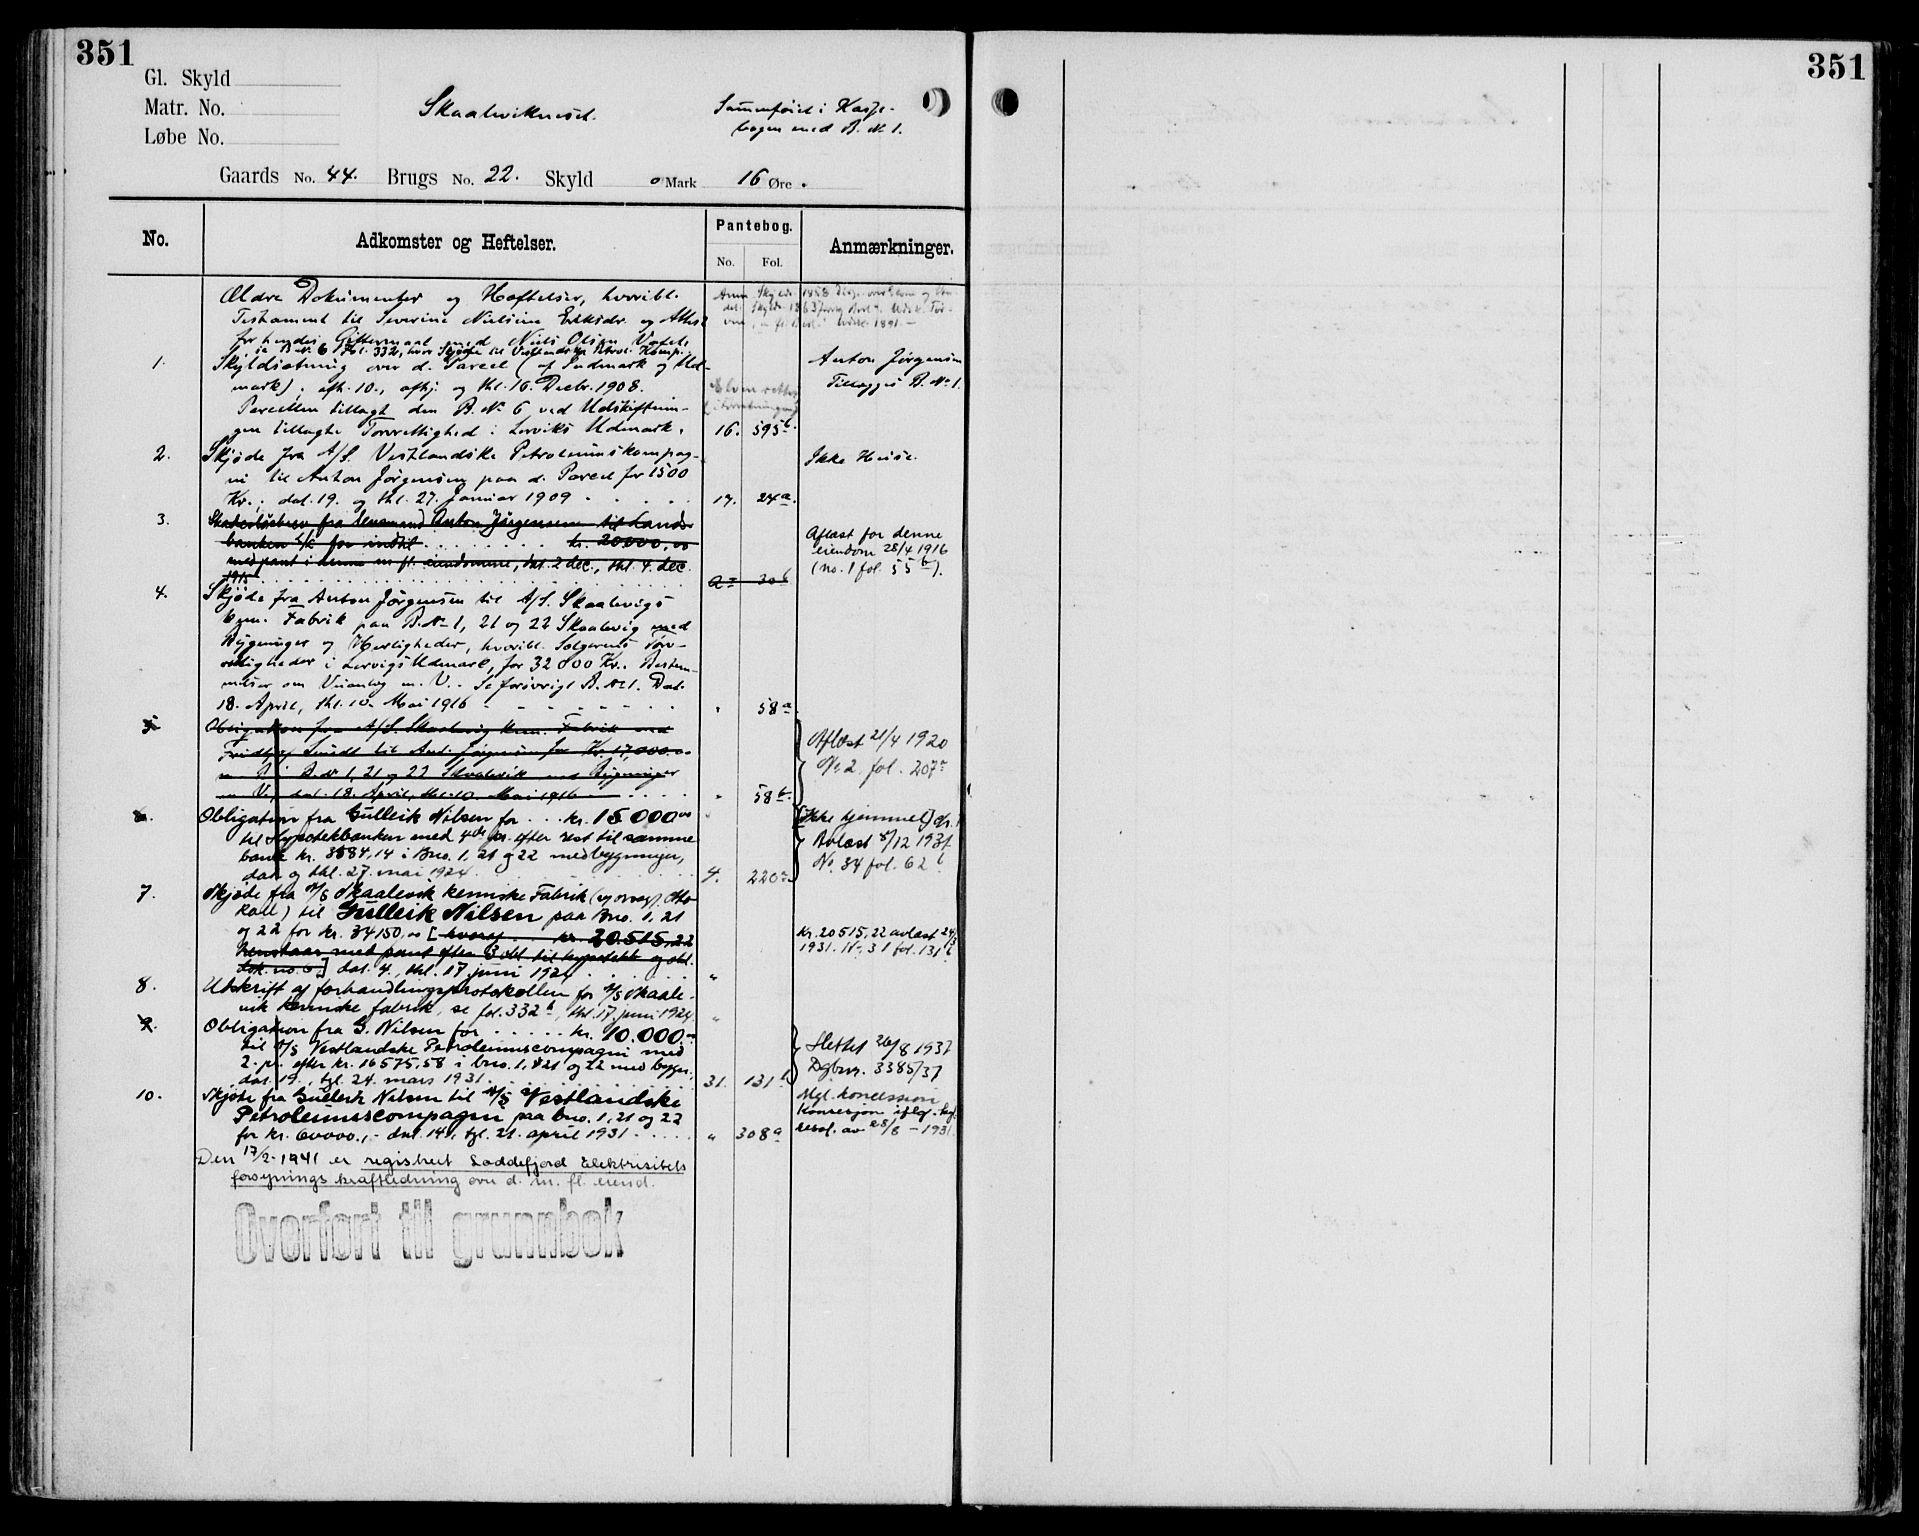 351
351
Gl. Skyld
Matr. No.
Løbe No.
Skaalevikneset.
Sammenføiet i Kasse-
bogen med B. No 1.
Gaards No. 44. Brugs No. 22. Skyld 0 Mark 16 Øre.
No.
Adkomster og Heftelser.
Pantebog.
No. Fol.
Anmærkninger.
Ældre Dokumenter og Heftelser, hvoribl.
Testament til Severine Nielsine Eriksdr. og Attest
for hendes Giftermaal med Niels Olsen
se B. No. 6 Fol. 332, hvor Skjøde til Vestlandske Petrol. Komp.
1. Skyldsætning over d. Parcel (af Indmark og Ud-
mark), afh. 10., afhj. og thl. 16. Decbr. 1908.
Parcellen tillagt den B. No 6 ved Udskiftnin-
gen tillagte Torvrettighed i Lerviks Udmark. 16. 595b.
Anton Jørgensen
Tillægges B. No 1.
2. Skjøde fra A/S. Vestlandske Petroleumskompag-
ni til Anton Jørgensen paa d. Parcel for 1500
Kr., dat. 19. og thl. 27. Januar 1909 17. 24a.
Ikke Huse.
3. Skadesløsbrev fra lensmand Anton Jørgensen til Lands-
banken A/S for indtil kr. 20000,00
med pant i denne m. fl. eiendomme, dat. 2 dec., thl. 4. dec.
1915 30b
Aflæst for denne
eiendom 28/4 1916
(no. 1 fol. 55b).
4. Skjøde fra Anton Jørgensen til A/S. Skaalevigs
kem. Fabrik paa B. No 1, 21 og 22 Skaalevig med
Bygninger og Herligheder, hvoribl. Sælgerens Torv-
rettigheder i Lervigs Udmark, for 32000 Kr. Bestem-
melser om Veianlæg m. V. Se forøvrigt B. No 1. Dat.
18. April, thl. 10. Mai 1916 " 58a.
5. Obligation fra A/S. Skaalevig kem. Fabrik ved
Smidt til Ant. Jørgensen for Kr. 17,000.00
B. No 1, 21 og 22 Skaalevik med Bygninger
m. V., dat. 18. April, thl. 10. Mai 1916 " 58b.
Aflæst 21/4 1920
No 2 fol. 207a
6. Obligation fra Gulleik Nilsen for kr. 15000,00
til Hypotekbanken med 4de pr. efter rest til samme
bank kr. 3584,14 i Bno. 1, 21 og 22 med bygninger,
dat. og thl. 27. mai 1924 4. 220a
[Ikke hjemmel]
Avlæst 8/12 1931
No. 34 fol. 62b.
7. Skjøde fra A/S Skaalevik kemiske Fabrik
til Gulleik Nilsen paa Bno. 1, 21
og 22 for kr. 34150,00 [hvorav kr. 20.515,22
henstaar med pant efter 3 obl. til hypotekb. og obl.
dok. no. 6.] dat. 4., thl. 17. juni 1924 "
kr. 20515,22 avlæst
1931. No 31 fol. 131b
8. Utskrift av forhandlingsprotokollen for A/S Skaale-
vik kemiske fabrik, se fol. 332b, thl. 17. juni 1924 "
9. Obligation fra G. Nilsen for kr. 10.000,00
til A/S Vestlandske Petroleumscompagni med
2. pr. efter kr. 16575,58 i bno. 1, 21 og 22 med bygn.,
dat. 19., tgl. 24. mars 1931. 31. 131b
Slettet 26/8 1937
Dgbnr. 3385/37
10. Skjøte fra Gulleik Nilsen til A/S Vestlandske
Petroleumscompagni paa bno. 1, 21 og 22
for kr. 60000,- dat. 14, tgl. 21. april 1931 " 308a
Mgl. koncession
Konsesjon iflg. kgl.
resol. av 28/8 - 1931.
Den 17/2-1941 er registrert Loddefjord Elektrisitets
forsynings kraftledning over d. m. fl. eiend.
Overført til grunnbok